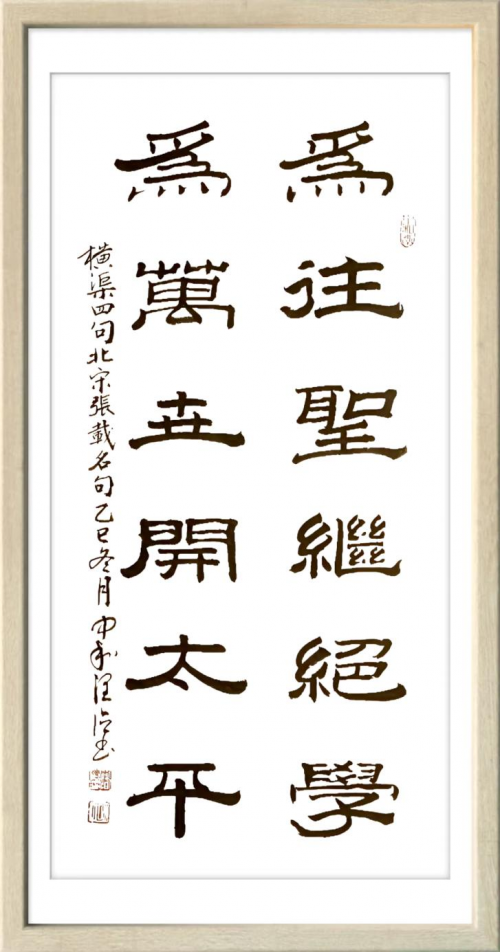 為往聖繼絕學
為萬世開太平
橫渠四句北宋張載名句乙巳冬月中和汪